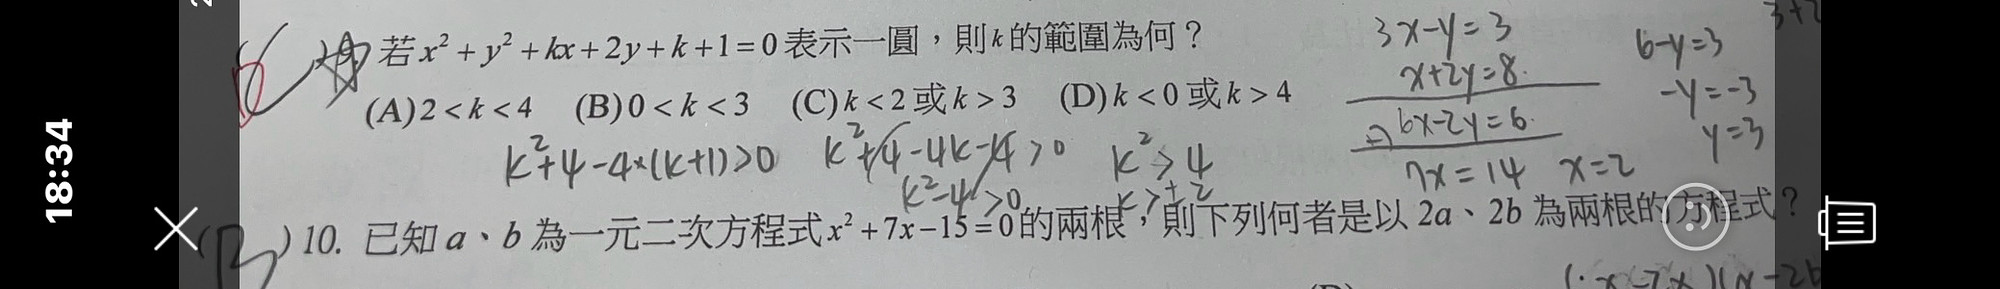 18:34
若 x² + y² + kx + 2y + k + 1 = 0 表示一圓，則 k 的範圍為何？
(A) 2 < k < 4 (B) 0 < k < 3 (C) k < 2 或 k > 3 (D) k < 0 或 k > 4
k²+4-4×(k+1)>0 k²+4-4k-4>0 k²>4
k²-4>0 k>±2
3x-y=3
x+2y=8
6x-2y=6
7x=14 x=2
6-y=3
-y=-3
y=3
(B) 10. 已知 a、b 為一元二次方程式 x² + 7x − 15 = 0 的兩根，則下列何者是以 2a、2b 為兩根的方程式？